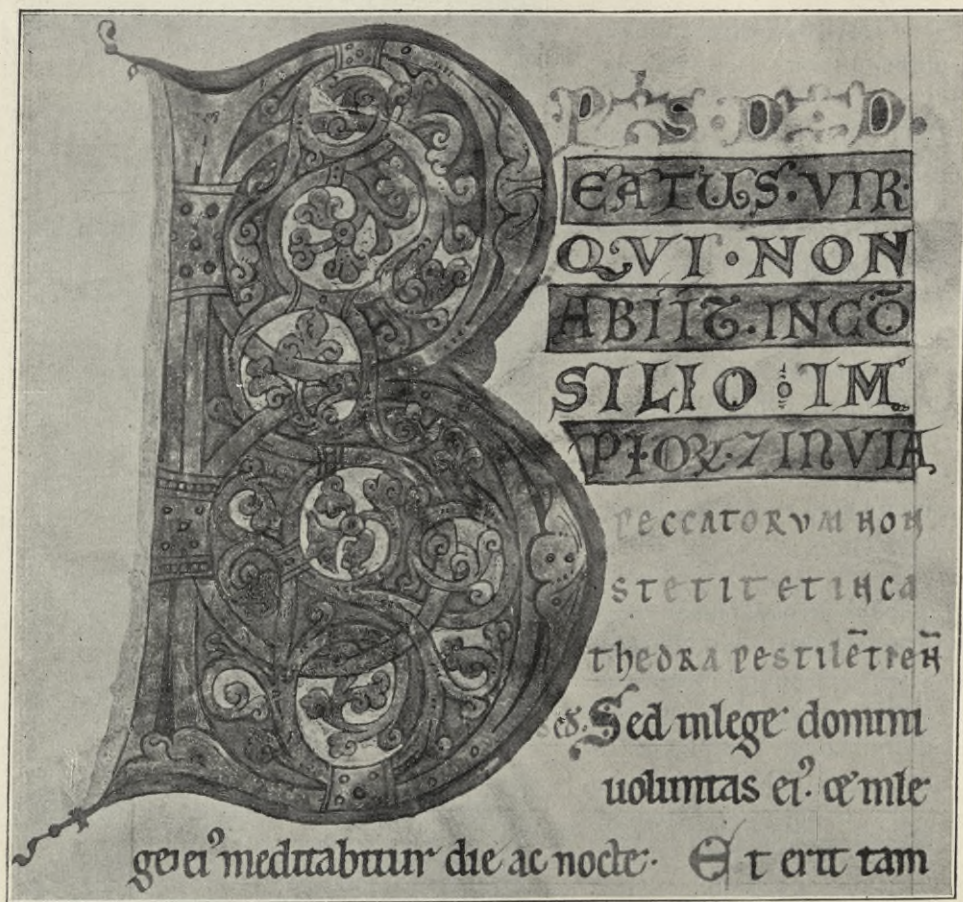 PS·D·D·
BEATUS·VIR·
QVI·NON
ABIIT·INCŌ
SILIO : IM
PIOꝜ·⁊ INVIA
PECCATORVM NON
STETIT ET INCA
THEDRA PESTILĒTIE N̄
Sed inlege domini
uoluntas eiꝰ· & inle
ge eiꝰ meditabitur die ac nocte· Et erit tam